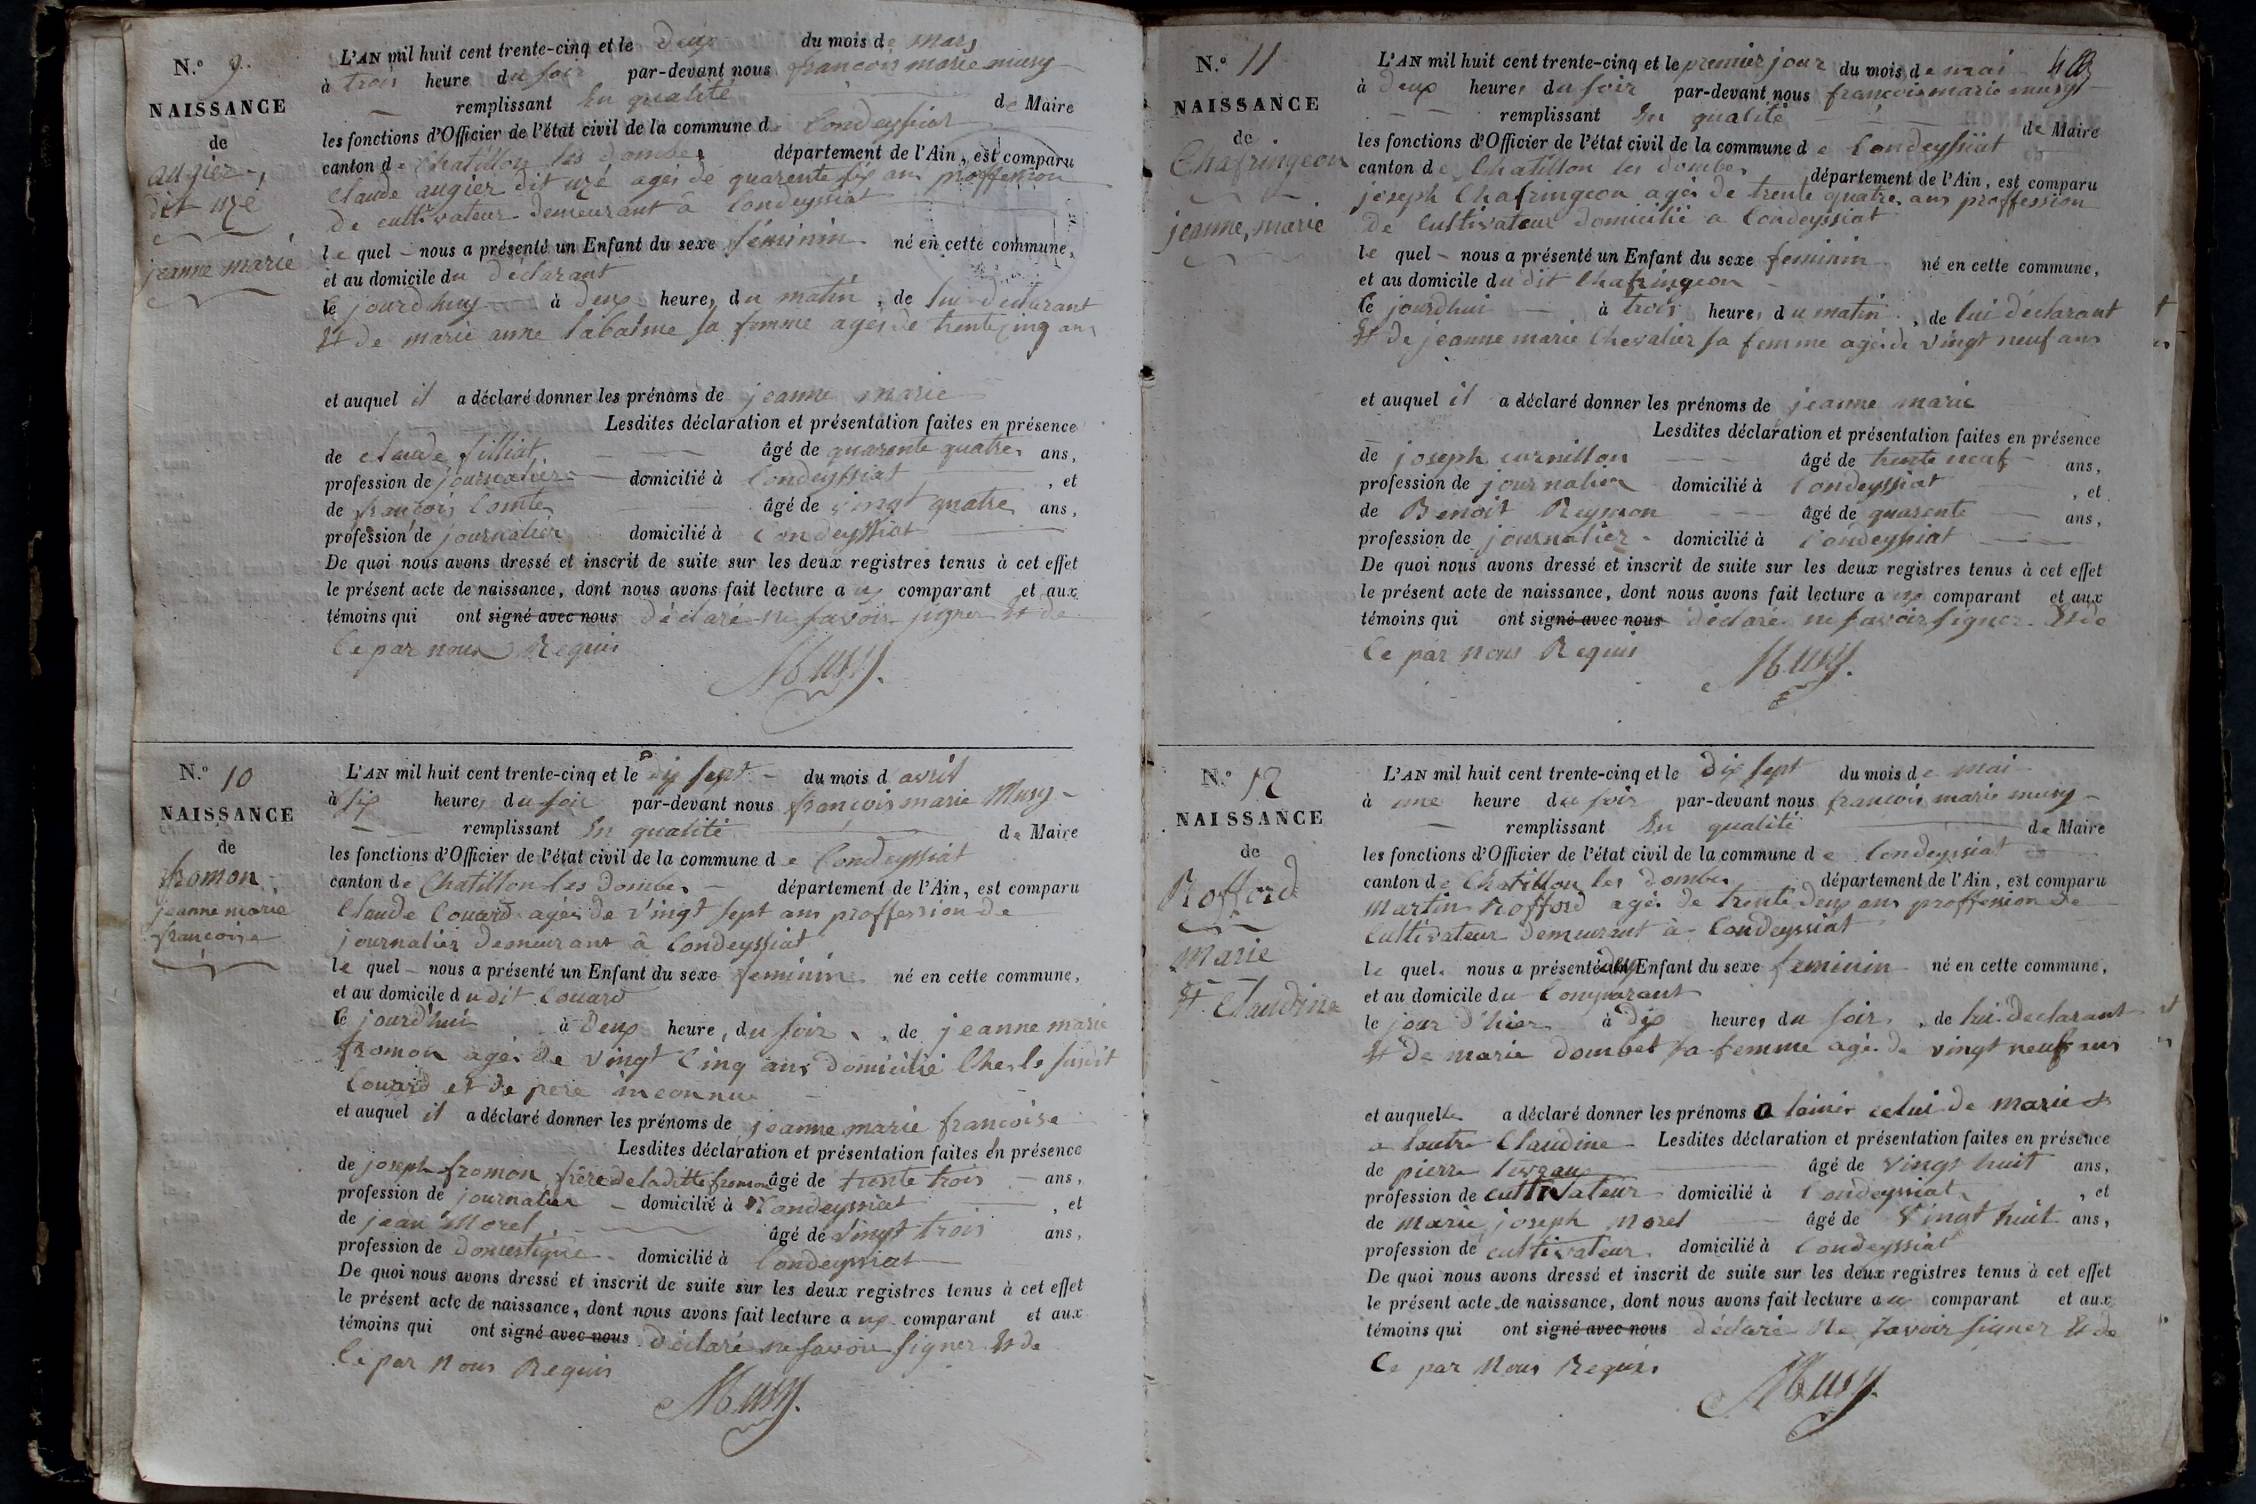 N.° 9.
NAISSANCE
de
augier
dit uzé
jeanne marie
L'AN mil huit cent trente-cinq et le deux du mois de mars
à trois heure du soir par-devant nous francois marie musy
remplissant En qualité de Maire
les fonctions d'Officier de l'état civil de la commune de Condeyssiat
canton de Chatillon les dombes département de l'Ain, est comparu
Claude augier dit uzé agés de quarente six ans proffession
de cultivateur demeurant à Condeyssiat
le quel nous a présenté un Enfant du sexe féminin né en cette commune,
et au domicile du déclarant
le jourdhuy à deux heures du matin, de lui déclarant
Et de marie anne labalme sa femme agés de trente cinq ans
et auquel il a déclaré donner les prénoms de jeanne marie
Lesdites déclaration et présentation faites en présence
de claude filliat âgé de quarente quatre ans,
profession de journalier domicilié à Condeyssiat, et
de francois Comte âgé de vingt quatre ans,
profession de journalier domicilié à Condeyssiat
De quoi nous avons dressé et inscrit de suite sur les deux registres tenus à cet effet
le présent acte de naissance, dont nous avons fait lecture aux comparant et aux
témoins qui ont signé avec nous déclaré ne savoir signer Et de
Ce par nous Requis
Musy.
N.° 10
NAISSANCE
de
fromon
jeanne marie
francoise
L'AN mil huit cent trente-cinq et le dix sept du mois d avril
à six heures du soir par-devant nous françois marie Musy
remplissant En qualité de Maire
les fonctions d'Officier de l'état civil de la commune de Condeyssiat
canton de Chatillon les Dombes département de l'Ain, est comparu
Claude Couard agés de vingt sept ans proffession de
journalier demeurant à Condeyssiat
le quel nous a présenté un Enfant du sexe feminin né en cette commune,
et au domicile dudit Couard
le jourd'hui à deux heure, du soir, de jeanne marie
fromon agés de vingt Cinq ans domicilié Chez le susdit
Couard et de pere inconnu
et auquel il a déclaré donner les prénoms de jeanne marie francoise
Lesdites déclaration et présentation faites en présence
de joseph fromon frère de la ditte fromon âgé de trente trois ans,
profession de journalier domicilié à Condeyssiat, et
de jean Morel âgé de vingt trois ans,
profession de domestique domicilié à Condeyssiat
De quoi nous avons dressé et inscrit de suite sur les deux registres tenus à cet effet
le présent acte de naissance, dont nous avons fait lecture aux comparant et aux
témoins qui ont signé avec nous déclaré ne savoir signer Et de
Ce par Nous Requis
Musy.
N.° 11
NAISSANCE
de
Chafringeon
jeanne, marie
L'AN mil huit cent trente-cinq et le premier jour du mois de mai
à deux heures du soir par-devant nous francois marie musy
remplissant En qualité de Maire
les fonctions d'Officier de l'état civil de la commune de Condeyssiat
canton de Chatillon les dombes département de l'Ain, est comparu
joseph Chafringeon agés de trente quatre ans proffession
de Cultivateur domicilié a Condeyssiat
le quel nous a présenté un Enfant du sexe feminin né en cette commune,
et au domicile du dit Chafringeon
le jourdhui à trois heures du matin, de lui déclarant
Et de jeanne marie Chevalier sa femme agés de vingt neuf ans
et auquel il a déclaré donner les prénoms de jeanne marie
Lesdites déclaration et présentation faites en présence
de joseph curnillon âgé de trente neuf ans,
profession de journalier domicilié à Condeyssiat, et
de Benoit Reymon âgé de quarente ans,
profession de journalier domicilié à Condeyssiat
De quoi nous avons dressé et inscrit de suite sur les deux registres tenus à cet effet
le présent acte de naissance, dont nous avons fait lecture aux comparant et aux
témoins qui ont signé avec nous déclaré ne savoir signer Et de
Ce par Nous Requis
Musy.
N.° 12
NAISSANCE
de
Rofford
Marie
Et Claudine
L'AN mil huit cent trente-cinq et le dix sept du mois de mai
à une heure du soir par-devant nous francois marie musy
remplissant En qualité de Maire
les fonctions d'Officier de l'état civil de la commune de Condeyssiat
canton de Chatillon les dombes département de l'Ain, est comparu
Martin Rofford agé de trente deux ans proffession de
Cultivateur demeurant à Condeyssiat
le quel nous a présenté Enfant du sexe feminin né en cette commune,
et au domicile du Comparant
le jour d'hier à dix heures du soir, de lui déclarant
Et de marie dombet sa femme agé de vingt neuf ans
et auquel a déclaré donner les prénoms a celui de marie et
a lautre Claudine Lesdites déclaration et présentation faites en présence
de pierre levrau âgé de vingt huit ans,
profession de cultivateur domicilié à Condeyssiat, et
de marie joseph morel âgé de vingt huit ans,
profession de cultivateur domicilié à Condeyssiat
De quoi nous avons dressé et inscrit de suite sur les deux registres tenus à cet effet
le présent acte de naissance, dont nous avons fait lecture aux comparant et aux
témoins qui ont signé avec nous déclaré Ne savoir signer Et de
Ce par Nous Requis
Musy.